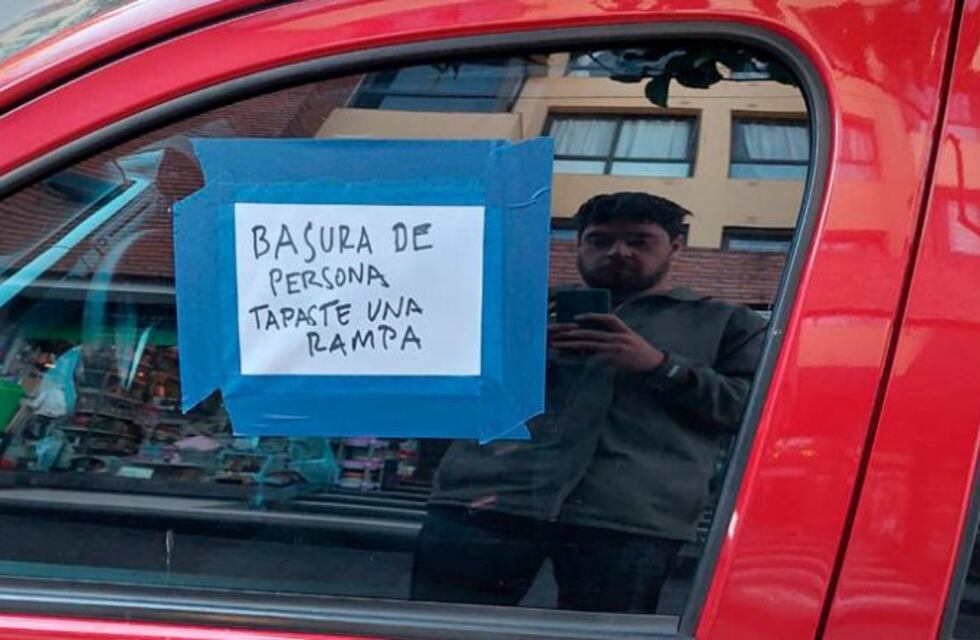 BASURA DE
PERSONA
TAPASTE UNA
RAMPA